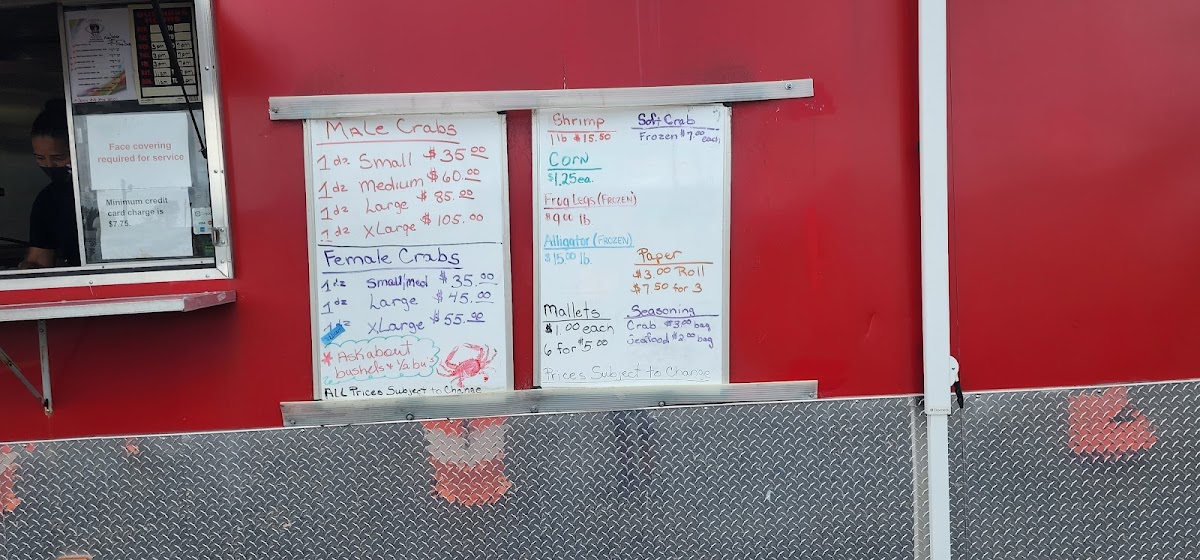 Face covering
required for service
Minimum credit
card charge is
$7.75.
Male Crabs
1 dz Small $35.00
1 dz Medium $60.00
1 dz Large $85.00
1 dz XLarge $105.00
Female Crabs
1 dz Small/med $35.00
1 dz Large $45.00
1 dz XLarge $55.00
* Ask about
bushels + Yabu's
ALL Prices Subject to Change
Shrimp
1 lb $15.50
Soft Crab
Frozen $7.00 each
Corn
$1.25 ea.
Frog Legs (Frozen)
$9.00 lb
Alligator (Frozen)
$15.00 lb.
Paper
$3.00 Roll
$7.50 for 3
Mallets
$1.00 each
6 for $5.00
Seasoning
Crab $3.00 bag
Seafood $2.00 bag
Prices Subject to Change